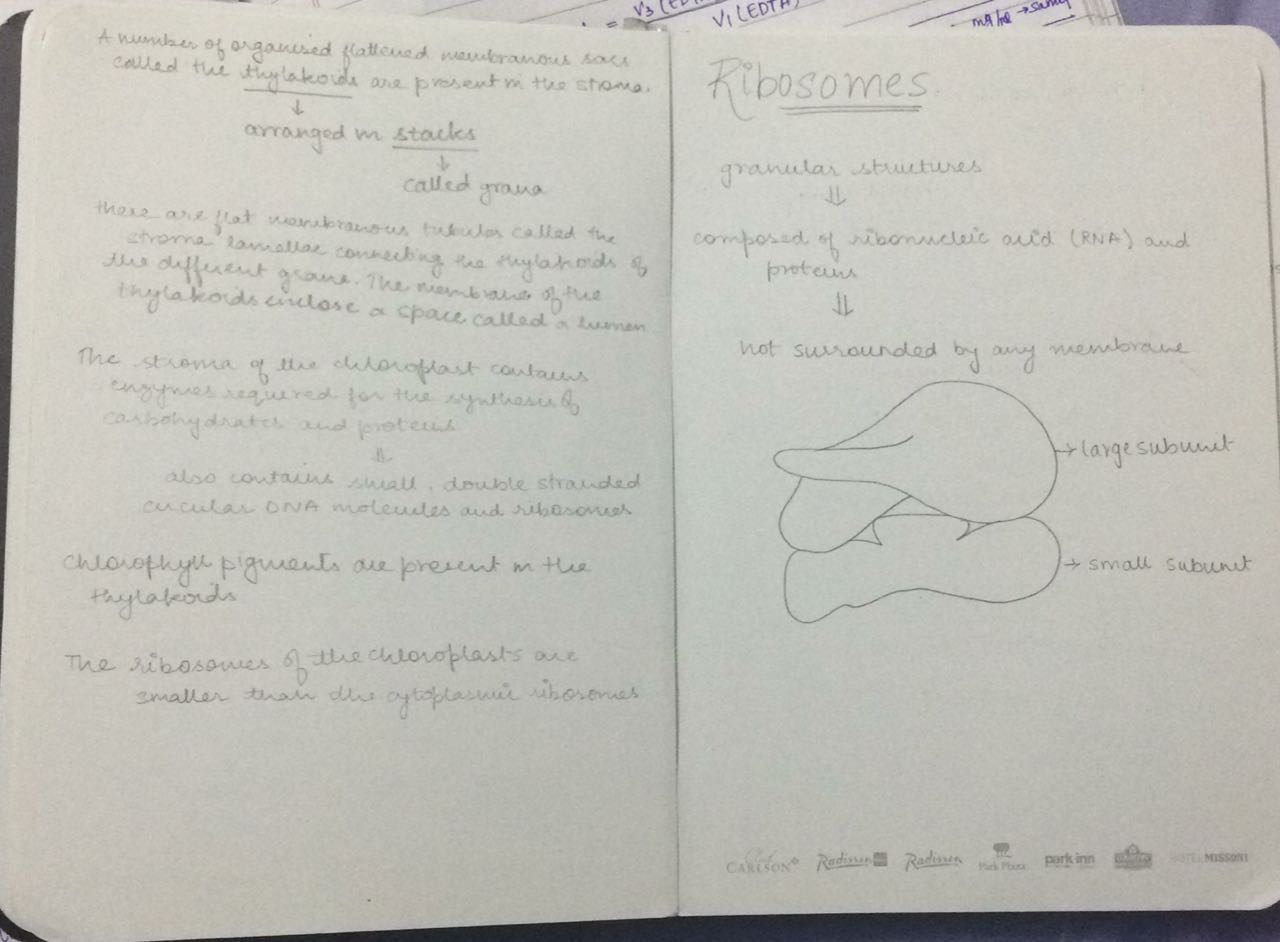 V3 (EDTA)
V1 (EDTA)
A number of organised flattened membranous sacs
called the thylakoids are present in the stroma.
↓
arranged in stacks
↓
called grana
there are flat membranous tubules called the
stroma lamellae connecting the thylakoids of
the different grana. The membrane of the
thylakoids enclose a space called a lumen
The stroma of the chloroplast contains
enzymes required for the synthesis of
carbohydrates and proteins
⇓
also contains small, double stranded
circular DNA molecules and ribosomes
chlorophyll pigments are present in the
thylakoids
The ribosomes of the chloroplasts are
smaller than the cytoplasmic ribosomes
Ribosomes
granular structures
⇓
composed of ribonucleic acid (RNA) and
proteins
⇓
not surrounded by any membrane
→ large subunit
→ small subunit
CARLSON Radisson Radisson Park Plaza park inn HOTEL MISSONI